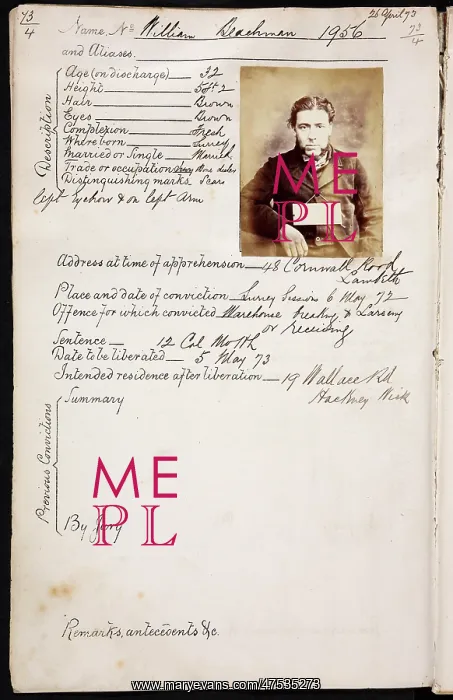 73/4
26 April 73
73/4
Name, No. William Beachman 1956
and Aliases.
Description
Age (on discharge) 32
Height 5 ft 2
Hair Brown
Eyes Brown
Complexion Fresh
Where born Surrey
Married or Single Married
Trade or occupation dealer
Distinguishing marks Scars
left eyebrow & on left arm
ME
PL
Address at time of apprehension 48 Cornwall Road
Lambeth
Place and date of conviction Surrey Sessions 6 May 72
Offence for which convicted Warehouse breaking & Larceny
or Receiving
Sentence 12 Cal Month
Date to be liberated 5 May 73
Intended residence after liberation 19 Wallace Rd
Hackney Wick
Previous Convictions
Summary
ME
PL
By Jury
Remarks, antecedents &c.
www.maryevans.com/47595273